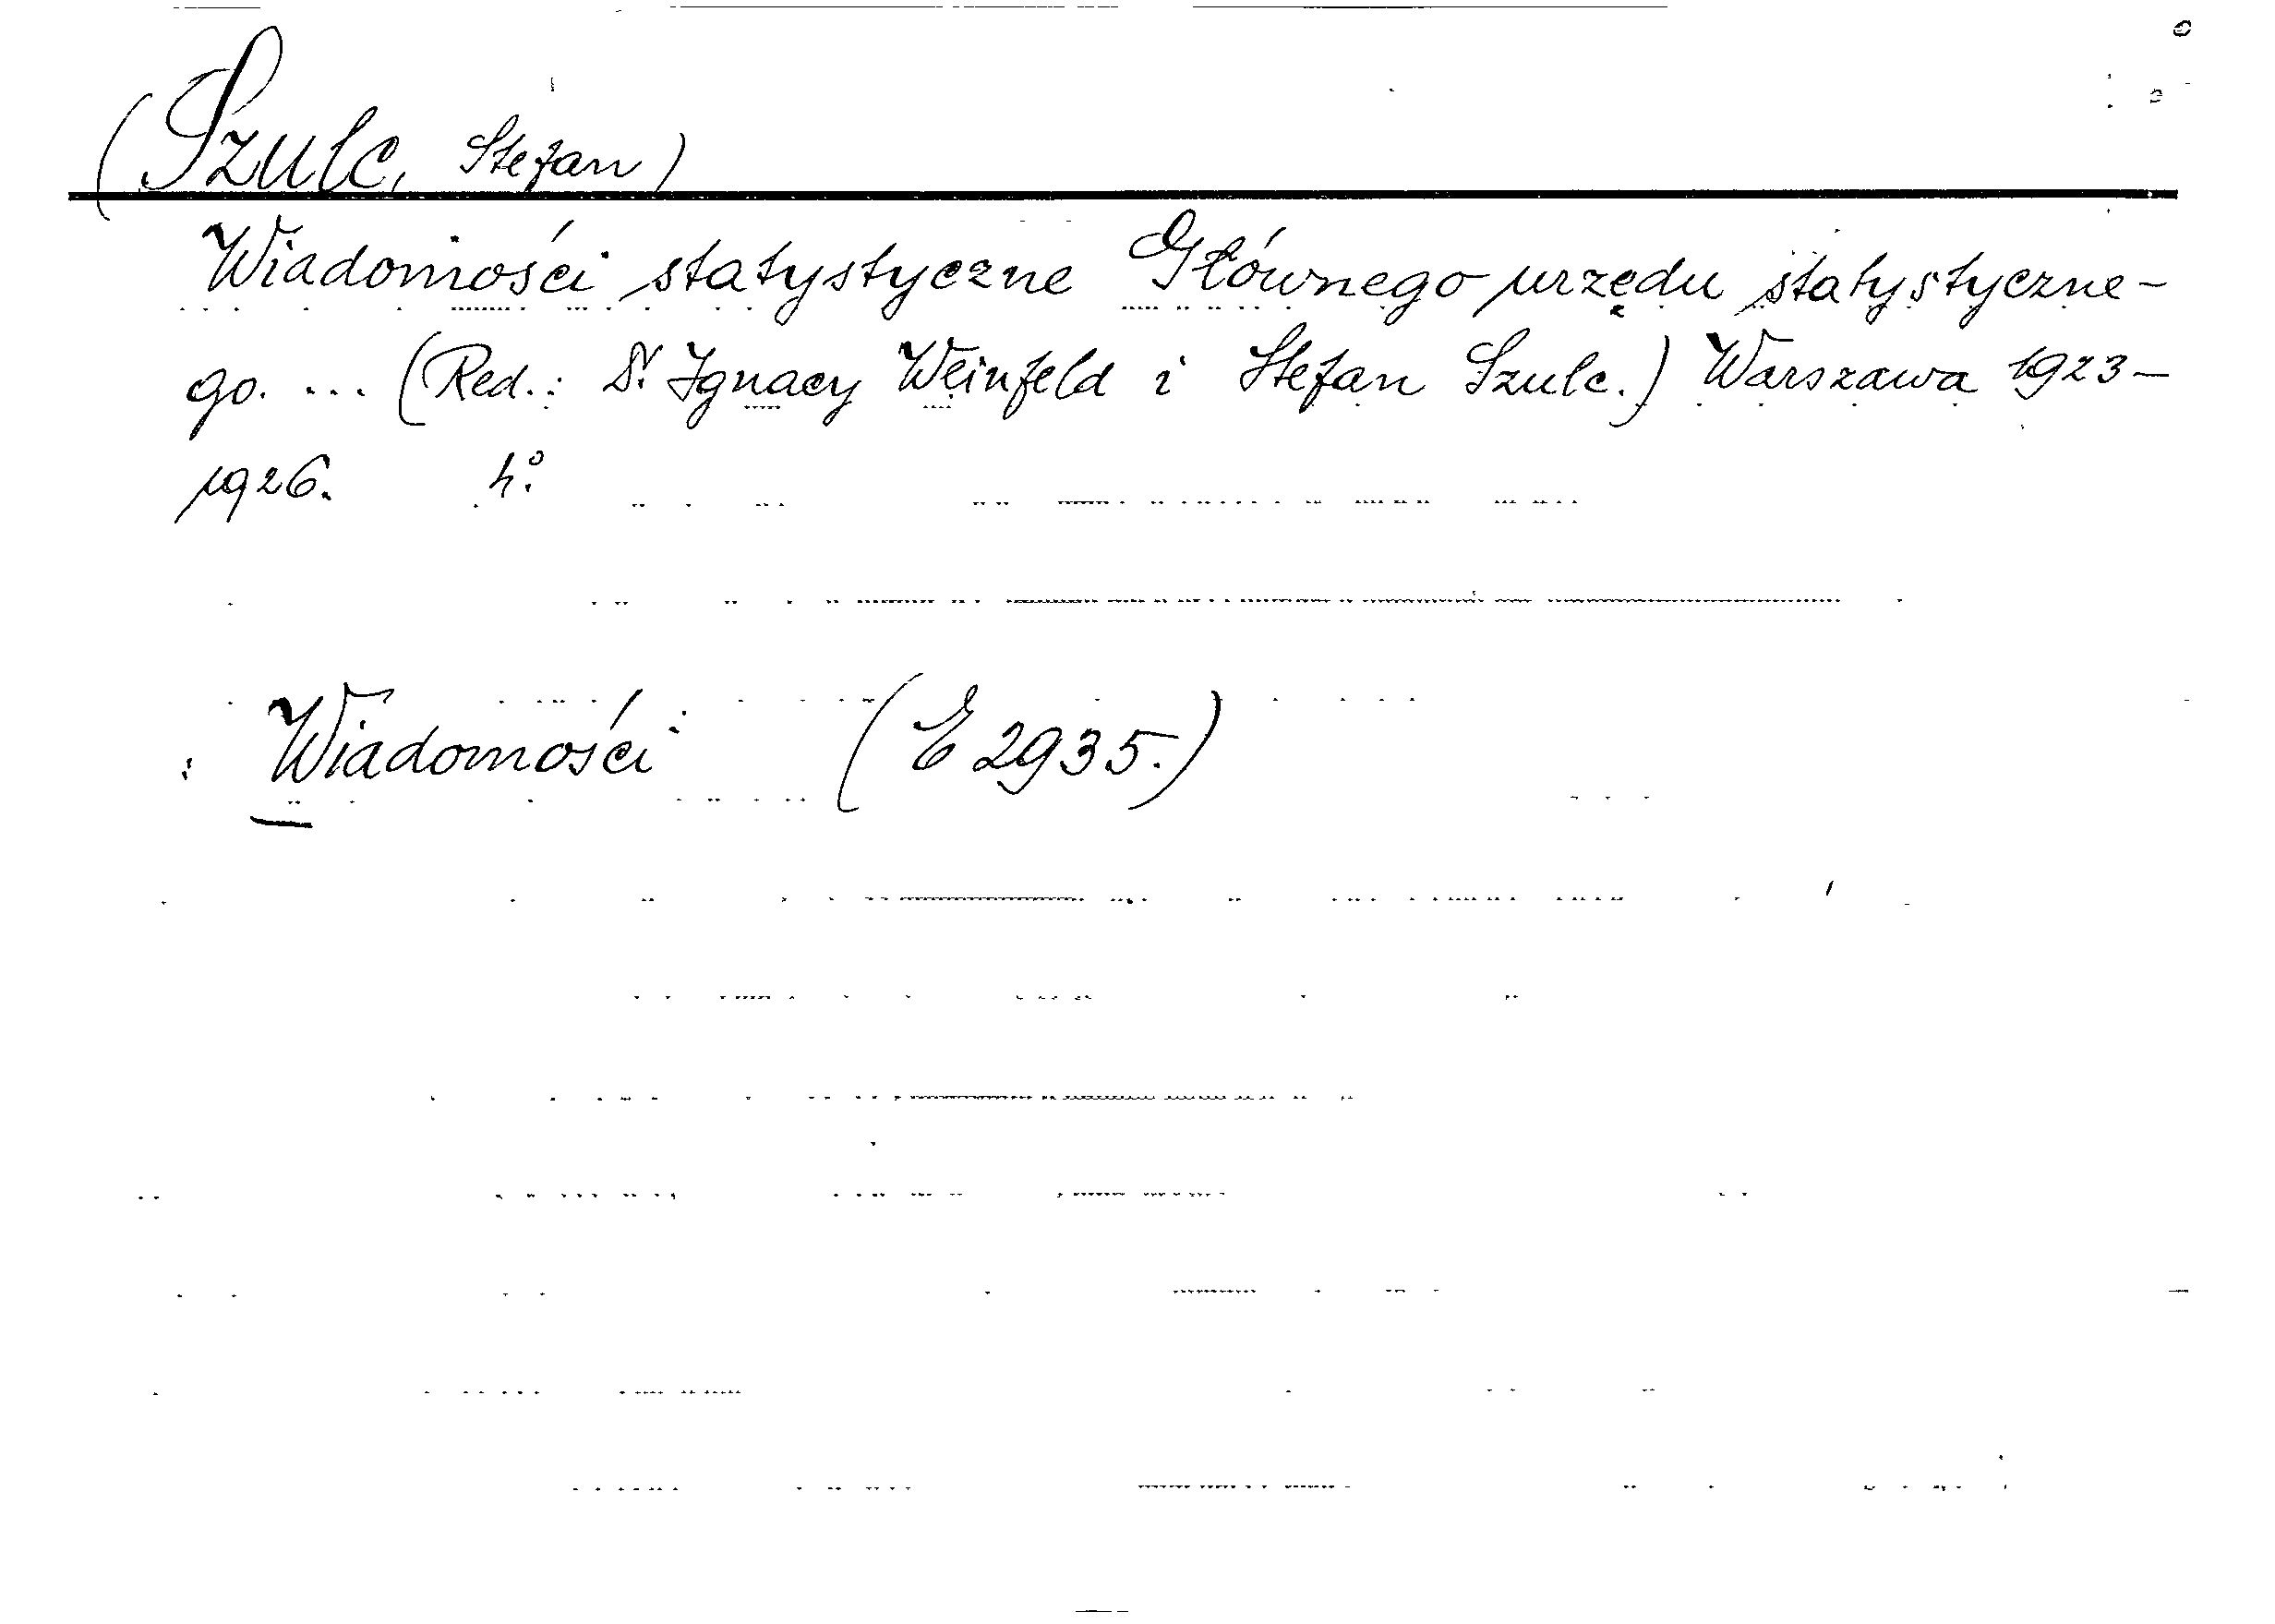 (Szulc, Stefan)
Wiadomości statystyczne Głównego urzędu statystyczne-
go. ... (Red.: Dr. Ignacy Weinfeld i Stefan Szulc.) Warszawa 1923-
1926. 4°.
: Wiadomości (E 2935.)